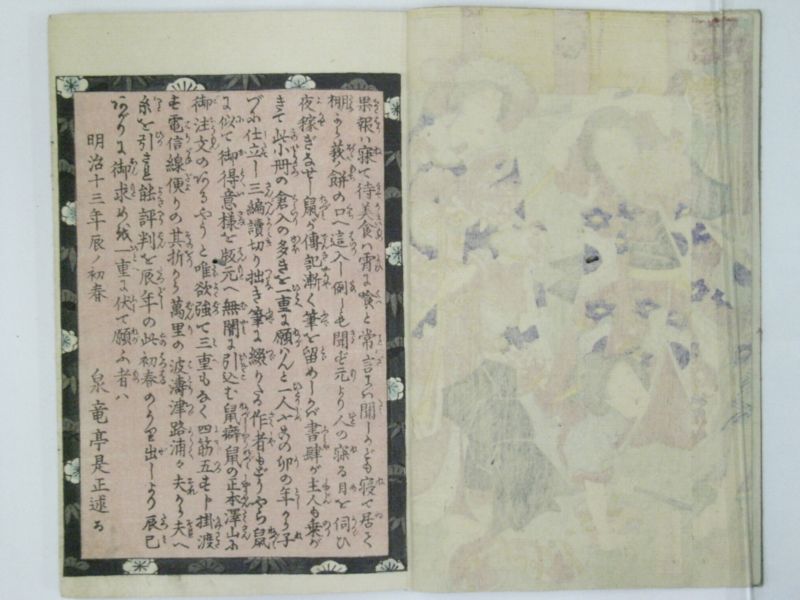 果報ハ寐て待美食ハ宵に喰と常言にハ聞しかども寝て居て
棚から萩の餅の口へ這入し例しも聞ず元より人の寐る目を伺ひ
夜稼ぎなせし鼠が傳記漸く筆を留めしかバ書肆が主人も乗が
きて此小冊の倉入の多きを一重に願ハんと一人の卯の年から子
づゝ仕立し三編讀切り拙き筆に綴りたる作者もどうやら鼠
に似て御得意様を版元へ無闇に引込む鼠癖鼠の正本澤山に
御注文のあるやうと唯欲強て三重もなく四筋五もト掛渡
す電信線便りの其折から萬里の波濤津路浦々夫から夫へ
糸を引き能評判を辰ノ年の此初春のうり出しより辰巳
あがりに御求めを一重に伏て願ふ者ハ
明治十三年辰ノ初春
泉竜亭是正述る